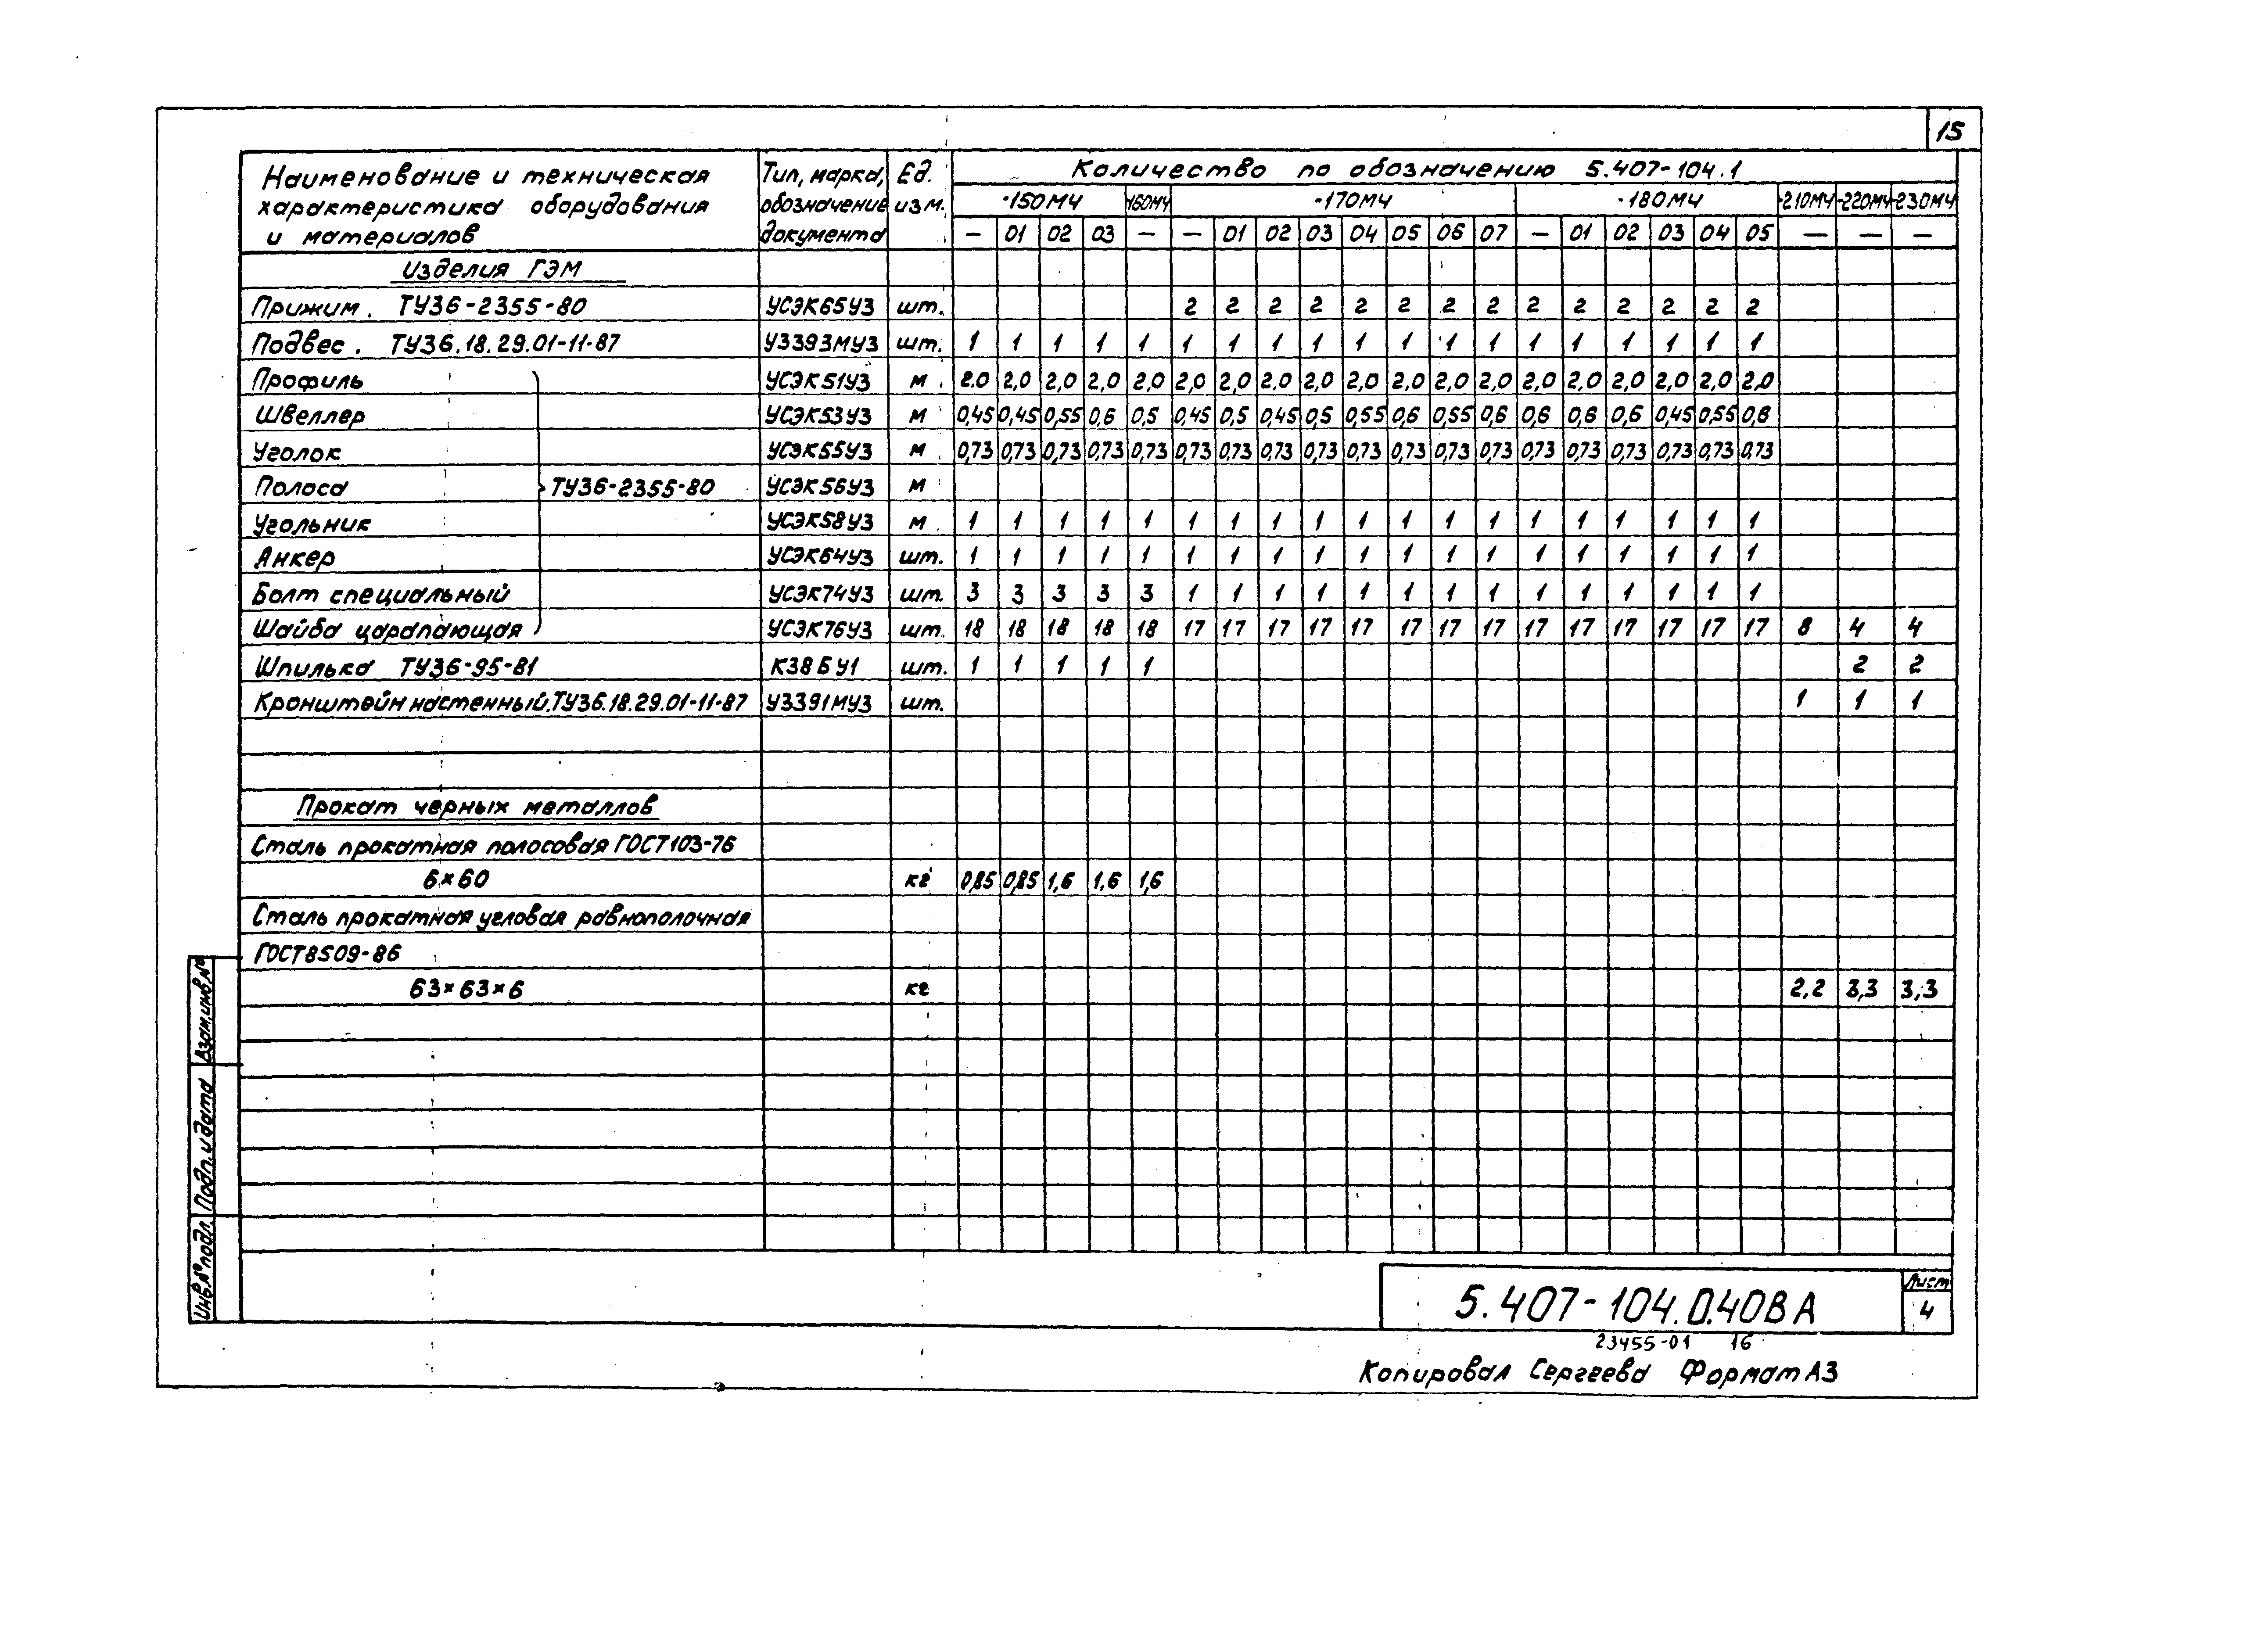 15
Наименование и техническая характеристика оборудования и материалов | Тип, марка, обозначение документа | Ед. изм. | Количество по обозначению 5.407-104.1
-150МЧ | -160МЧ | -170МЧ | -180МЧ | -210МЧ | -220МЧ | -230МЧ
— 01 02 03 — — 01 02 03 04 05 06 07 — 01 02 03 04 05 — — —
Изделия ГЭМ
Прижим. ТУ36-2355-80 УСЭК65У3 шт. 2 2 2 2 2 2 2 2 2 2 2 2 2 2
Подвес. ТУ36.18.29.01-11-87 У3393МУ3 шт. 1 1 1 1 1 1 1 1 1 1 1 1 1 1 1 1 1 1 1
Профиль УСЭК51У3 м 2.0 2,0 2,0 2,0 2,0 2,0 2,0 2,0 2,0 2,0 2,0 2,0 2,0 2,0 2,0 2,0 2,0 2,0 2,0
Швеллер УСЭК53У3 м 0,45 0,45 0,55 0,6 0,5 0,45 0,5 0,45 0,5 0,55 0,6 0,55 0,6 0,6 0,6 0,6 0,45 0,55 0,6
Уголок УСЭК55У3 м 0,73 0,73 0,73 0,73 0,73 0,73 0,73 0,73 0,73 0,73 0,73 0,73 0,73 0,73 0,73 0,73 0,73 0,73 0,73
Полоса ТУ36-2355-80 УСЭК56У3 м
Угольник УСЭК58У3 м 1 1 1 1 1 1 1 1 1 1 1 1 1 1 1 1 1 1 1
Анкер УСЭК64У3 шт. 1 1 1 1 1 1 1 1 1 1 1 1 1 1 1 1 1 1 1
Болт специальный УСЭК74У3 шт. 3 3 3 3 3 1 1 1 1 1 1 1 1 1 1 1 1 1 1
Шайба царапающая УСЭК76У3 шт. 18 18 18 18 18 17 17 17 17 17 17 17 17 17 17 17 17 17 17 8 4 4
Шпилька ТУ36-95-81 К38БУ1 шт. 1 1 1 1 1 2 2
Кронштейн настенный.ТУ36.18.29.01-11-87 У3391МУ3 шт. 1 1 1
Прокат черных металлов
Сталь прокатная полосовая ГОСТ103-76
6×60 кг 0,85 0,85 1,6 1,6 1,6
Сталь прокатная угловая равнополочная
ГОСТ8509-86
63×63×6 кг 2,2 3,3 3,3
Взам.инв.№
Подп. и дата
Инв.№ подл.
5.407-104.0.40ВА
Лист
4
23455-01 16
Копировал Сергеева Формат А3